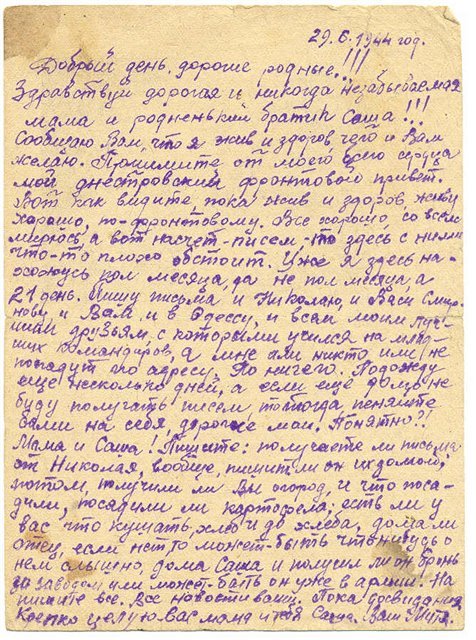 29.6.1944 год.
Добрый день, дорогие родные..!!!
Здравствуй дорогая и никогда незабываемая
мама и родненький братик Саша!!!
Сообщаю Вам, что я жив и здоров, чего и Вам
желаю. Примите от моего всего сердца
мой днестровский фронтовой привет.
Вот как видите, пока жив и здоров, живу
хорошо, по-фронтовому. Все хорошо, со всем
мирюсь, а вот насчет писем, то здесь с ними
что-то плохо обстоит. Уже я здесь на-
хожусь пол месяца, да не пол месяца, а
21 день. Пишу письма и Николаю, и Васи Смир-
нову, и Вам, и в Одессу, и всем моим луч-
шим друзьям, с которыми учился на млад-
ших командиров, а мне или никто или не
попадут по адресу. Но ничего. Подожду
еще несколько дней, а если еще дольше не
буду получать писем, то тогда пеняйте
сами на себя, дорогие мои. Понятно?!
Мама и Саша! Пишите: получаете ли письма
от Николая, вообще, пишит ли он их домой,
потом, получили ли Вы огород, и что поса-
дили, посадили ли картофель; есть ли у
вас что кушать, хлеб и до хлеба, дома ли
отец, если нет то может-быть что нибудь о
нем слышно, дома Саша и получил ли он бронь
за заводом или может-быть он уже в армии. На
пишите все. Все новости ваши. Пока, досвидания
Крепко целую вас мама и тебя Саша. Ваш